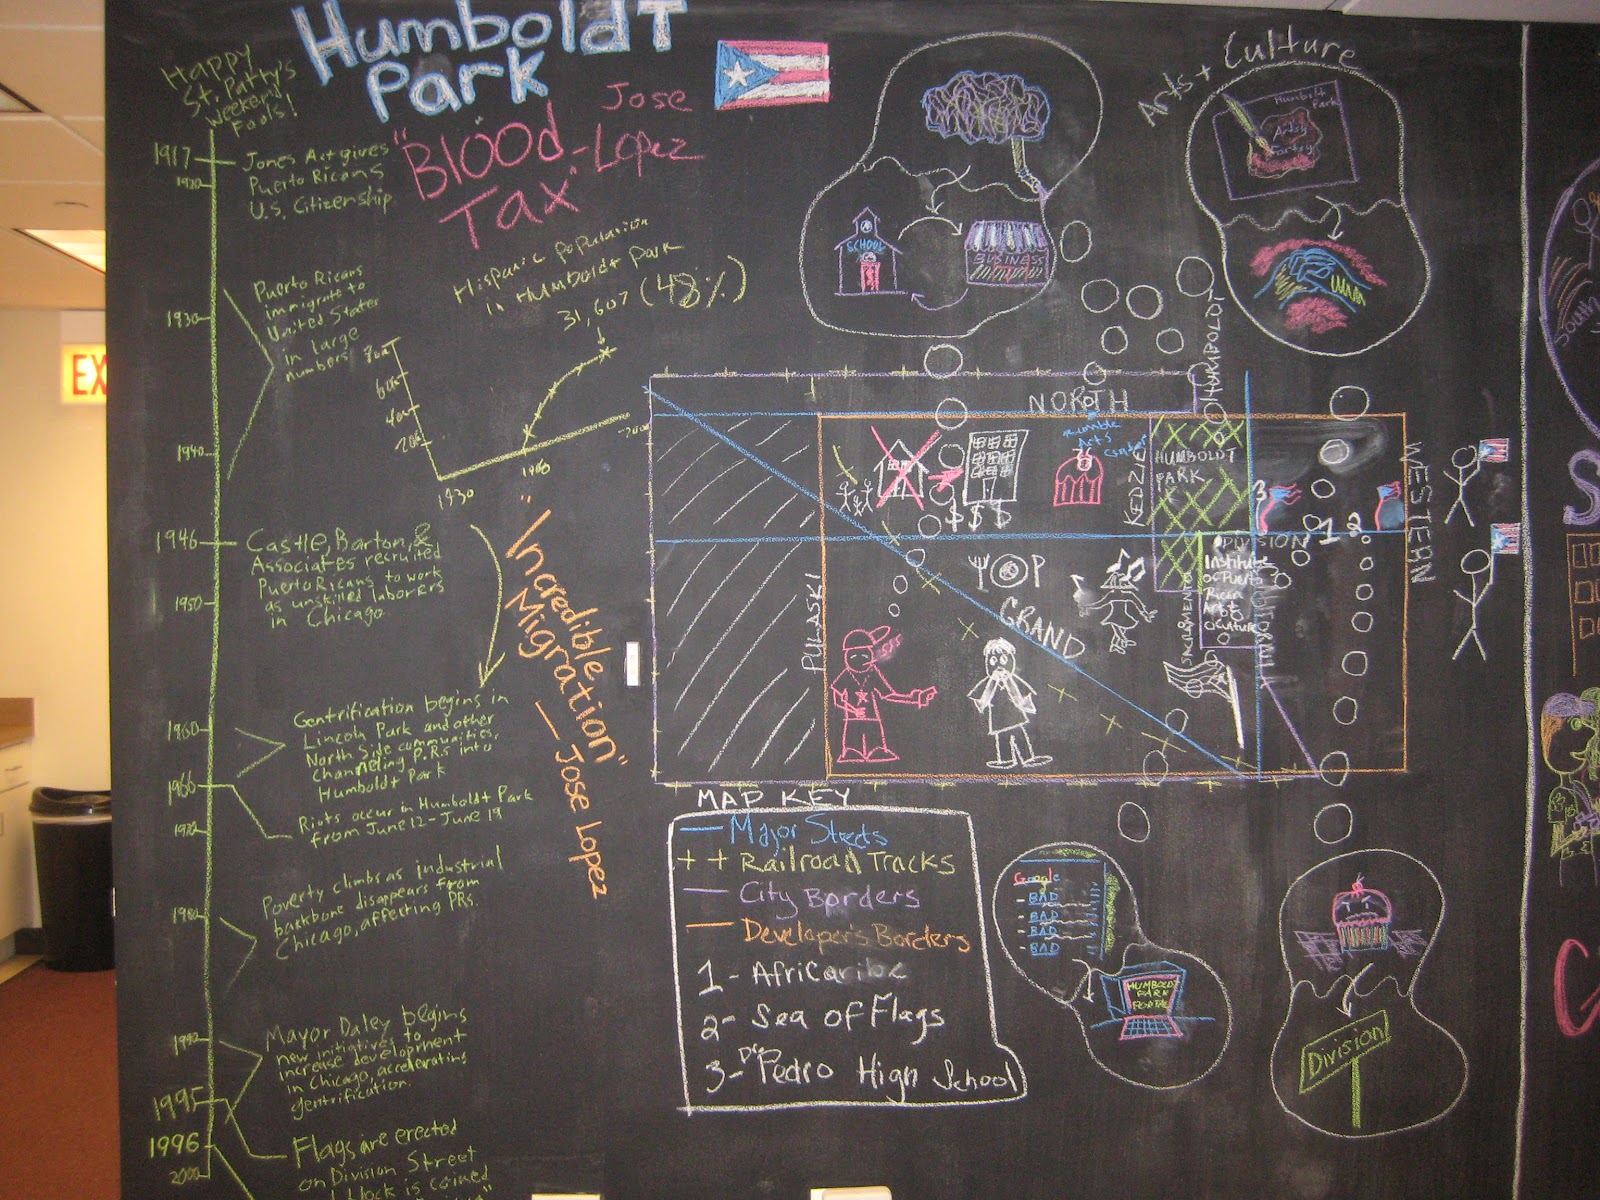 Humboldt
Park
Happy
St. Patty's
weekend
Fools!
"Blood
Tax"
- Jose
Lopez
1917
Jones Act gives
Puerto Ricans
U.S. Citizenship
1920
Puerto Ricans
immigrate to
United States
in large
numbers
1930
1940
1946
Castle, Barton, &
Associates recruited
Puerto Ricans to work
as unskilled laborers
in Chicago.
1950
1960
Gentrification begins in
Lincoln Park and other
North Side communities,
channeling P.R.s into
Humboldt Park
1966
Riots occur in Humboldt Park
from June 12 - June 19
1970
Poverty climbs as industrial
backbone disappears from
Chicago, affecting PRs.
1980
1990
Mayor Daley begins
new initiatives to
increase development
in Chicago, accelerating
gentrification.
1995
Flags are erected
on Division Street
block is coined
1996
2000
Hispanic population
in Humboldt Park
31,607 (48%)
1930
1960
2000
"Incredible
Migration"
— Jose Lopez
SCHOOL
BUSINESS
Arts + Culture
Humboldt
Park
NORTH
HUMBOLDT
KEDZIE
HUMBOLDT
PARK
WESTERN
Arts
Center
$ $ $
3
1
2
DIVISION
PULASKI
GRAND
SACRAMENTO
Institute
of Puerto
Rican
Art &
Culture
MAP KEY
Major Streets
+ + Railroad Tracks
City Borders
Developer's Borders
1 - Africaribe
2 - Sea of Flags
3 - Pedro High School
Google
- BAD
- BAD
- BAD
- BAD
HUMBOLDT
PARK
PORTAL
Division
South
EX